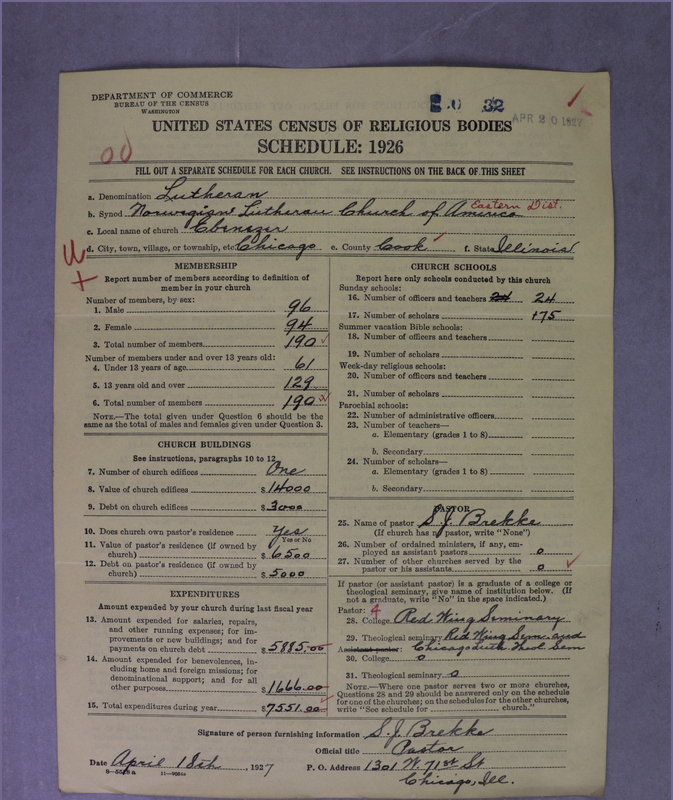 DEPARTMENT OF COMMERCE
BUREAU OF THE CENSUS
WASHINGTON
32
APR 20 1927
UNITED STATES CENSUS OF RELIGIOUS BODIES
SCHEDULE: 1926
FILL OUT A SEPARATE SCHEDULE FOR EACH CHURCH. SEE INSTRUCTIONS ON THE BACK OF THIS SHEET
a. Denomination Lutheran
b. Synod Norwegian Lutheran Church of America Eastern Dist.
c. Local name of church Ebenezer
d. City, town, village, or township, etc Chicago e. County Cook f. State Illinois
MEMBERSHIP
Report number of members according to definition of
member in your church
Number of members, by sex:
1. Male 96
2. Female 94
3. Total number of members 190
Number of members under and over 13 years old:
4. Under 13 years of age 61
5. 13 years old and over 129
6. Total number of members 190
NOTE.—The total given under Question 6 should be the
same as the total of males and females given under Question 3.
CHURCH BUILDINGS
See instructions, paragraphs 10 to 12
7. Number of church edifices One
8. Value of church edifices $14000
9. Debt on church edifices $3000
10. Does church own pastor's residence Yes
Yes or No
11. Value of pastor's residence (if owned by
church) $6500
12. Debt on pastor's residence (if owned by
church) $5000
EXPENDITURES
Amount expended by your church during last fiscal year
13. Amount expended for salaries, repairs,
and other running expenses; for im-
provements or new buildings; and for
payments on church debt $5885.00
14. Amount expended for benevolences, in-
cluding home and foreign missions; for
denominational support; and for all
other purposes $1666.00
15. Total expenditures during year $7551.00
CHURCH SCHOOLS
Report here only schools conducted by this church
Sunday schools:
16. Number of officers and teachers 24 24
17. Number of scholars 175
Summer vacation Bible schools:
18. Number of officers and teachers
19. Number of scholars
Week-day religious schools:
20. Number of officers and teachers
21. Number of scholars
Parochial schools:
22. Number of administrative officers
23. Number of teachers—
a. Elementary (grades 1 to 8)
b. Secondary
24. Number of scholars—
a. Elementary (grades 1 to 8)
b. Secondary
PASTOR
25. Name of pastor S. J. Brekke
(If church has no pastor, write "None")
26. Number of ordained ministers, if any, em-
ployed as assistant pastors 0
27. Number of other churches served by the
pastor or his assistants 0
If pastor (or assistant pastor) is a graduate of a college or
theological seminary, give name of institution below. (If
not a graduate, write "No" in the space indicated.)
Pastor: 4
28. College Red Wing Seminary
29. Theological seminary Red Wing Sem. and
Assistant pastor: Chicago Luth. Theol. Sem
30. College 0
31. Theological seminary 0
NOTE.—Where one pastor serves two or more churches,
Questions 28 and 29 should be answered only on the schedule
for one of the churches; on the schedules for the other churches,
write "See schedule for church."
Signature of person furnishing information S. J. Brekke
Official title Pastor
Date April 18th, 1927 P. O. Address 1301 W. 71st St
Chicago, Ill.